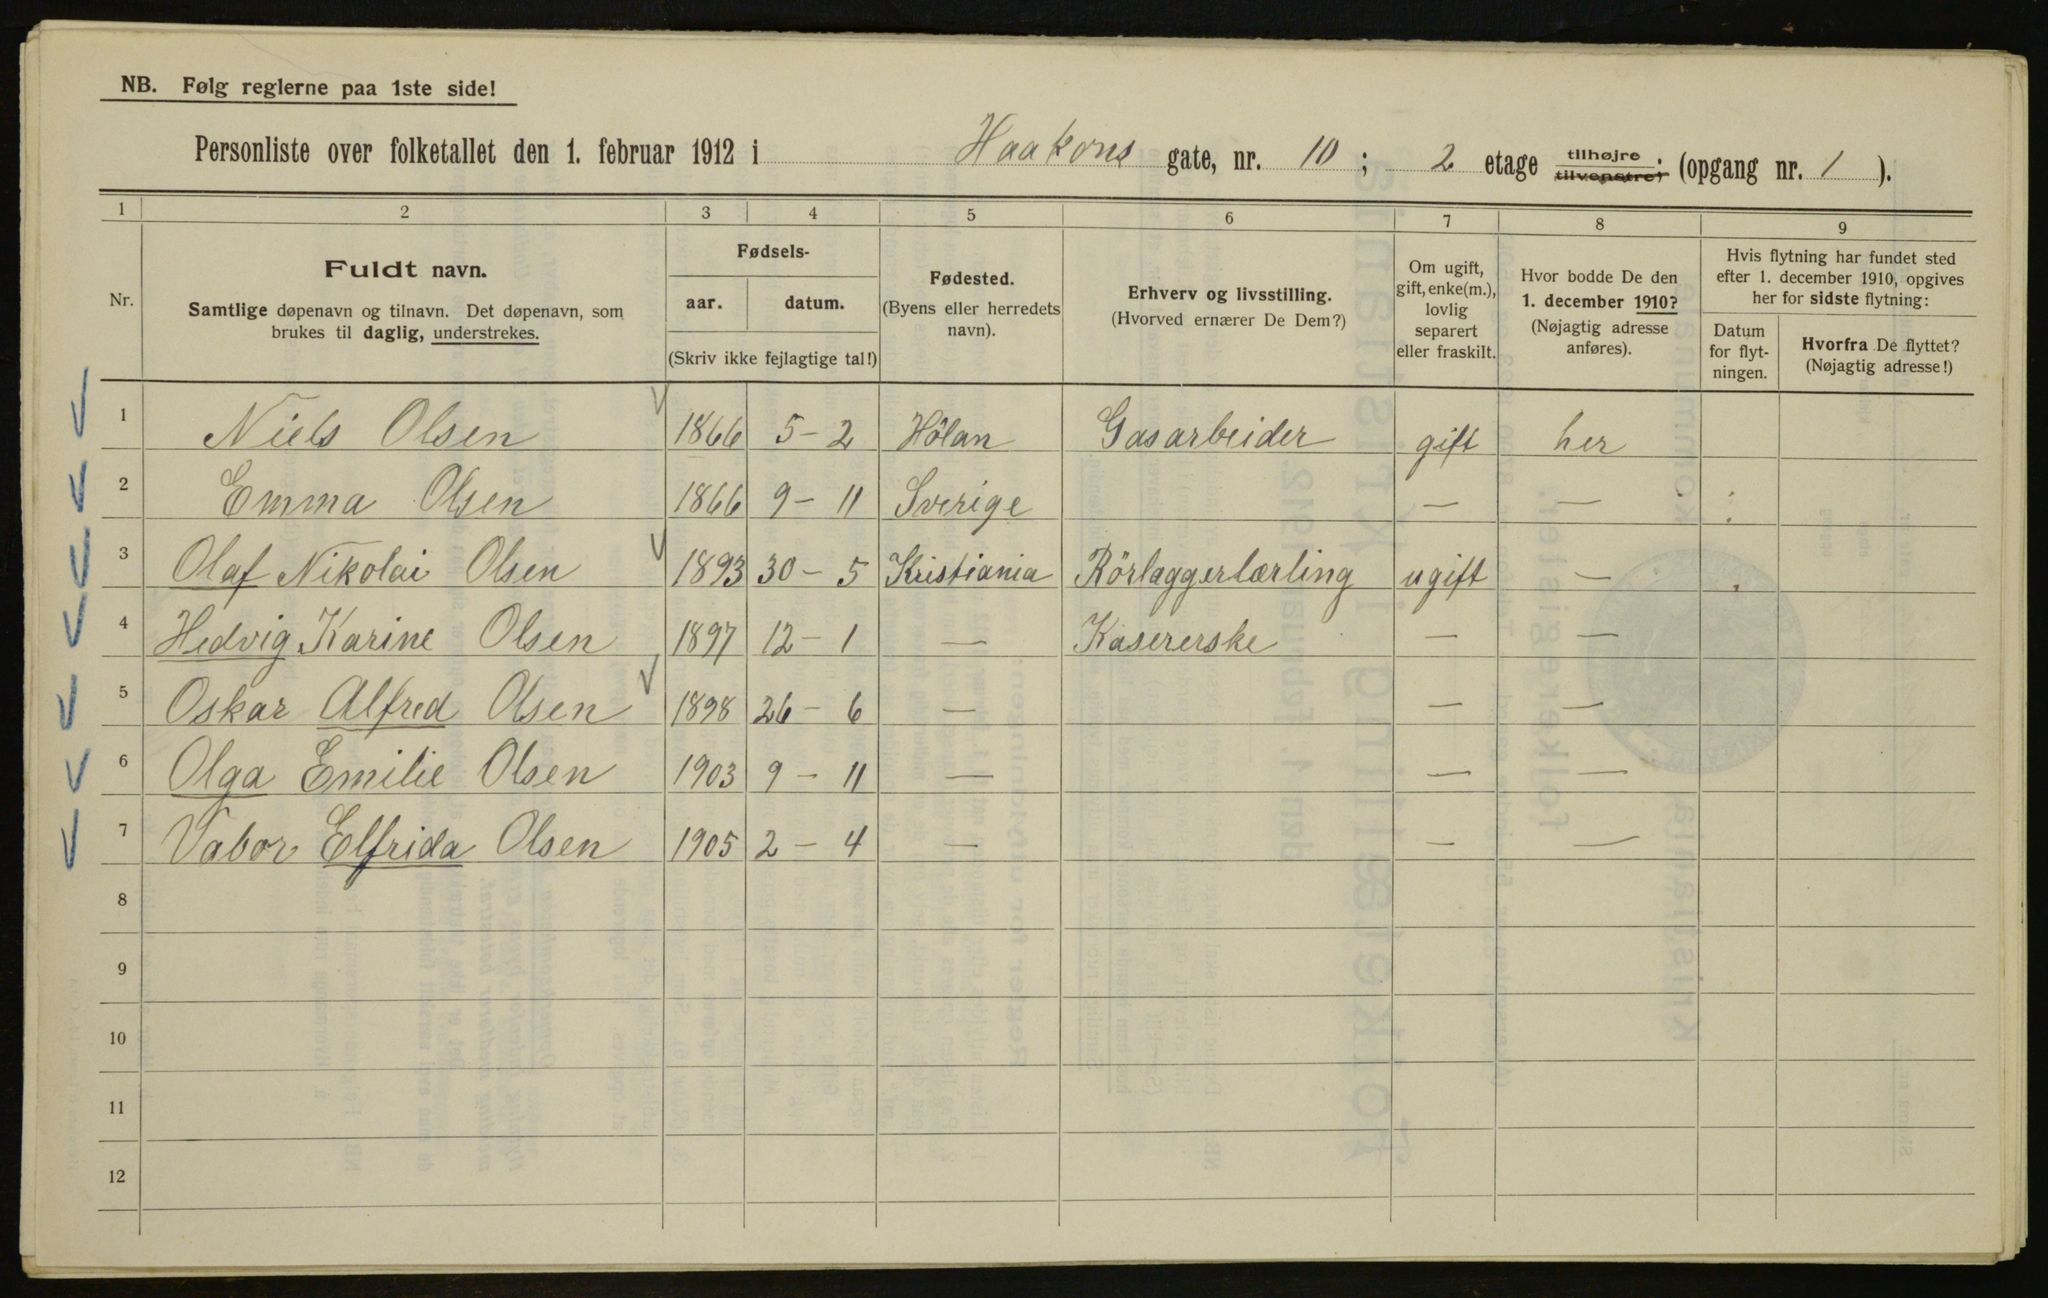 NB. Følg reglerne paa 1ste side!
Personliste over folketallet den 1. februar 1912 i Haakons gate, nr. 10; 2 etage tilhøjre. tilvenstre, (opgang nr. 1).
1 2 3 4 5 6 7 8 9
Nr.
Fuldt navn.
Samtlige døpenavn og tilnavn. Det døpenavn, som
brukes til daglig, understrekes.
Fødsels-
aar. datum.
(Skriv ikke fejlagtige tal!)
Fødested.
(Byens eller herredets
navn).
Erhverv og livsstilling.
(Hvorved ernærer De Dem?)
Om ugift,
gift, enke(m.),
lovlig
separert
eller fraskilt.
Hvor bodde De den
1. december 1910?
(Nøjagtig adresse
anføres).
Hvis flytning har fundet sted
efter 1. december 1910, opgives
her for sidste flytning:
Datum
for flyt-
ningen.
Hvorfra De flyttet?
(Nøjagtig adresse!)
1 Niels Olsen 1866 5 – 2 Hölan Gasarbeider gift her
2 Emma Olsen 1866 9 – 11 Sverige — —
3 Olaf Nikolai Olsen 1893 30 – 5 Kristiania Rörlæggerlærling ugift —
4 Hedvig Karine Olsen 1897 12 – 1 — Kasererske — —
5 Oskar Alfred Olsen 1898 26 – 6 — — —
6 Olga Emilie Olsen 1903 9 – 11 — — —
7 Vabor Elfrida Olsen 1905 2 – 4 — — —
8
9
10
11
12